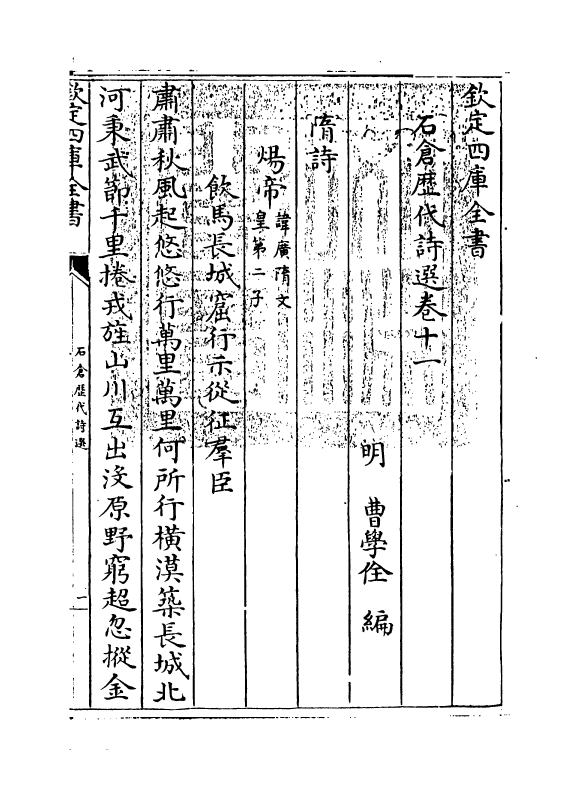 欽定四庫全書
石倉歷代詩選卷十一
明　曹學佺　編
隋詩
煬帝諱廣隋文
皇第二子
飲馬長城窟行示從征羣臣
肅肅秋風起悠悠行萬里萬里何所行橫漠築長城北
河秉武節千里捲戎旌山川互出沒原野窮超忽摐金
欽定四庫全書
石倉歷代詩選
一